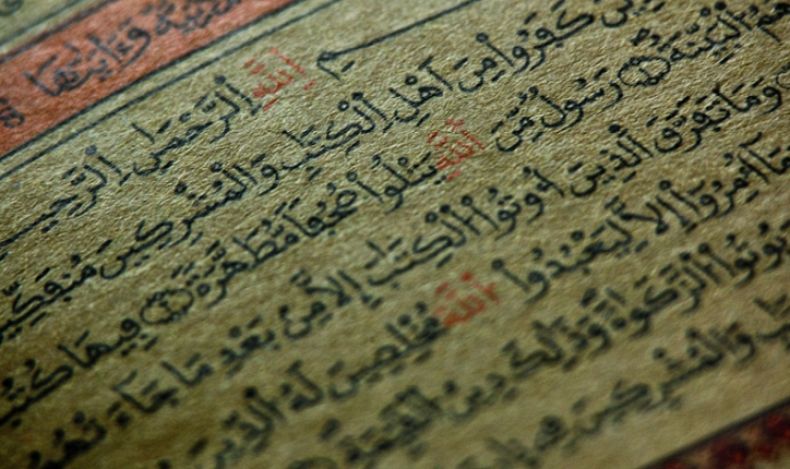 وَءَايَتُهَا
اِللَّهِ اِلرَّحْمَٰنِ اِلرَّحِيـ
كَفَرُوا مِنَ اَهْلِ اِلْكِتَٰبِ وَالْمُشْرِكِينَ مُنفَكِّين
اُلْبَيِّنَةُ رَسُولٌ مِّنَ اَللَّهِ يَتْلُوا صُحُفًا مُّطَهَّرَةً فِيهَا كُتُبٌ
وَمَا تَفَرَّقَ اَلذِينَ أُوتُوا اُلْكِتَٰبَ إِلَّا مِنۢ بَعْدِ مَا جَآءَتْهُمُ
وَمَآ أُمِرُوٓا إِلَّا لِيَعْبُدُوا اُللَّهَ مُخْلِصِينَ لَهُ اُلدِّينَ
يُوتُوا اُلزَّكَوٰةَ وَذَٰلِكَ دِينُ اُلْقَيِّمَةِ
وَالْمُشْرِكِينَ فِي